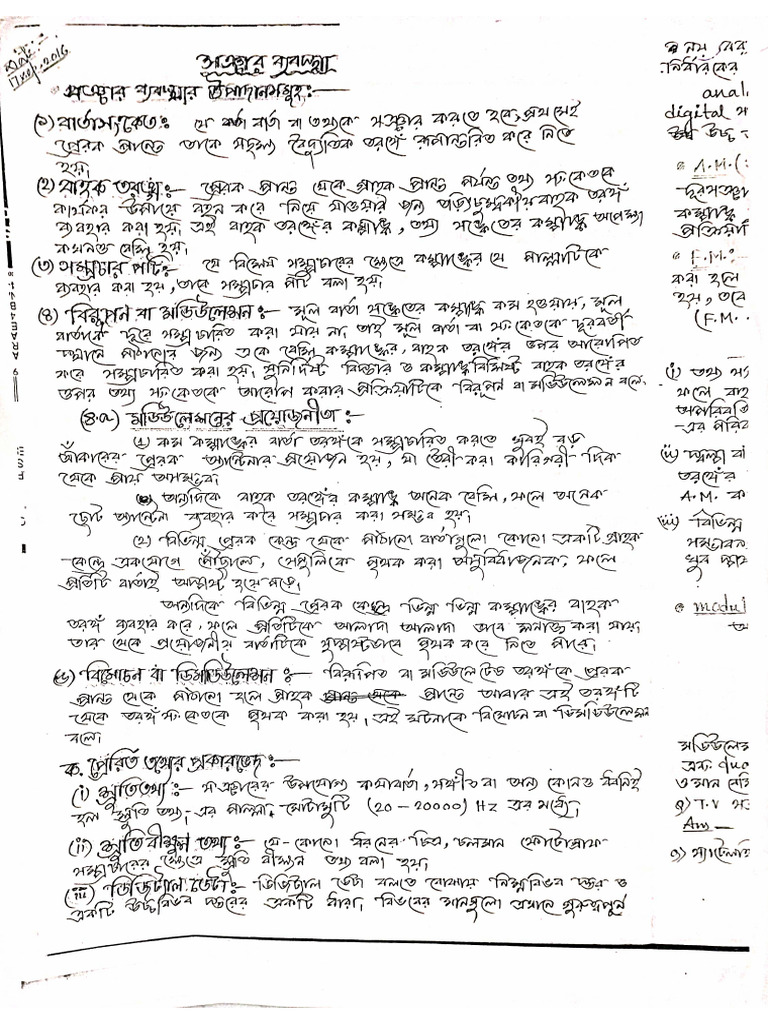 সঞ্চার ব্যবস্থা
সঞ্চার ব্যবস্থার উপাদানসমূহ:—
(১) বার্তাসংকেত:- যে বার্তা বা তথ্যকে সঞ্চার করতে হবে, প্রথমেই
প্রেরক প্রান্তে তাকে বৈদ্যুতিক তরঙ্গে রূপান্তরিত করে নিতে
হয়।
(২) বাহক তরঙ্গ:- প্রেরক প্রান্ত থেকে গ্রাহক প্রান্ত পর্যন্ত তথ্য সংকেতকে
কার্যকর উপায়ে বহন করে নিয়ে যাওয়ার জন্য তড়িৎচুম্বকীয় বাহক তরঙ্গ
ব্যবহার করা হয়। এই বাহক তরঙ্গের কম্পাঙ্ক, তথ্য সঙ্কেতের কম্পাঙ্ক অপেক্ষা
বেশি হয়।
(৩) সম্প্রচার পটি:- যে বিশেষ সম্প্রচারের ক্ষেত্রে কম্পাঙ্কের যে পাল্লাটিকে
ব্যবহার করা হয়, তাকে সম্প্রচার পটি বলা হয়।
(৪) বিরূপন বা মডিউলেশন:- মূল বার্তা সঙ্কেতের কম্পাঙ্ক কম হওয়ায়, মূল
বার্তাকে দূরে সম্প্রচারিত করা যায় না, তাই মূল বার্তা বা সংকেতকে দূরবর্তী
স্থানে পাঠানোর জন্য একে বেশি কম্পাঙ্কের, বাহক তরঙ্গের উপর আরোপিত
করে সম্প্রচারিত করা হয়। সুনির্দিষ্ট বিস্তার ও কম্পাঙ্কবিশিষ্ট বাহক তরঙ্গের
উপর তথ্য সংকেতকে আরোপ করার প্রক্রিয়াটিকে বিরূপন বা মডিউলেশন বলে।
(৪.a) মডিউলেশনের প্রয়োজনীতা:-
১) কম কম্পাঙ্কের বার্তা তরঙ্গকে সম্প্রচারিত করতে খুবই বড়
আঁকারের প্রেরক অ্যান্টেনার প্রয়োজন হয়, যা তৈরী করা কারিগরী দিক
থেকে প্রায় অসম্ভব।
অন্যদিকে বাহক তরঙ্গের কম্পাঙ্ক অনেক বেশি, ফলে অনেক
ছোট অ্যান্টেনা ব্যবহার করে সম্প্রচার করা সম্ভব হয়।
২) বিভিন্ন প্রেরক কেন্দ্র থেকে পাঠানো বার্তাগুলো কোনো একটি গ্রাহক
কেন্দ্রে একযোগে পৌঁছালে, সেগুলিকে পৃথক করা অসুবিধাজনক, ফলে
প্রতিটি বার্তাই অস্পষ্ট হয়ে পড়ে।
অন্যদিকে বিভিন্ন প্রেরক কেন্দ্র ভিন্ন ভিন্ন কম্পাঙ্কের বাহক
তরঙ্গ ব্যবহার করে, ফলে প্রতিটিকে আলাদা আলাদা ভাবে শনাক্ত করা যায়,
তার থেকে প্রয়োজনীয় বার্তাটিকে সুস্পষ্টভাবে পৃথক করে নিতে পারে।
বিমোচন বা ডিমডিউলেশন:- বিরূপিত বা মডিউলেটেড তরঙ্গকে প্রেরক
প্রান্ত থেকে পাঠানো হলে গ্রাহক প্রান্তে আবার এই তরঙ্গটি
থেকে তরঙ্গ সংকেতকে পৃথক করা হয়, এই ঘটনাকে বিমোচন বা ডিমডিউলেশন
বলে।
ক. প্রেরিত তথ্যের প্রকারভেদ:-
(i) শ্রুতিতথ্য:- সঞ্চারের উপযোগ্য কথাবার্তা, সঙ্গীত বা অন্য কোনও ধ্বনিই
হল শ্রুতি তথ্য, এর পাল্লা মোটামুটি (20 – 20000) Hz এর মধ্যে।
(ii) শ্রুতিবীক্ষন তথ্য:- যে-কোনো ধরনের চিত্র, চলমান ফোটোগ্রাফ
সম্প্রচারের ক্ষেত্রে শ্রুতি বীক্ষন তথ্য বলা হয়।
(iii) ডিজিটাল ডেটা:- ডিজিটাল ডেটা বলতে বোঝায় নিম্নবিভব স্তর ও
একটি উচ্চবিভব স্তরের একটি ধারা, বিভবের মানগুলো এখানে গুরুত্বপূর্ন
নির্বারকের
anal
digital স
উচ্চ
A.M. (:
কম্পাঙ্ক
প্রক্রিয়া
F.M:-
করা হলে
হয়, তবে
(F.M.
(i) তথ্য
ফলে বাহ
অপরিবর্তি
(ii)
তরঙ্গের
A.M. ক
(iii) বিভিন্ন
সম্ভাবন
খুব
modul
মডিউলেশ
এবং qua
৭) T.V স
Ans —